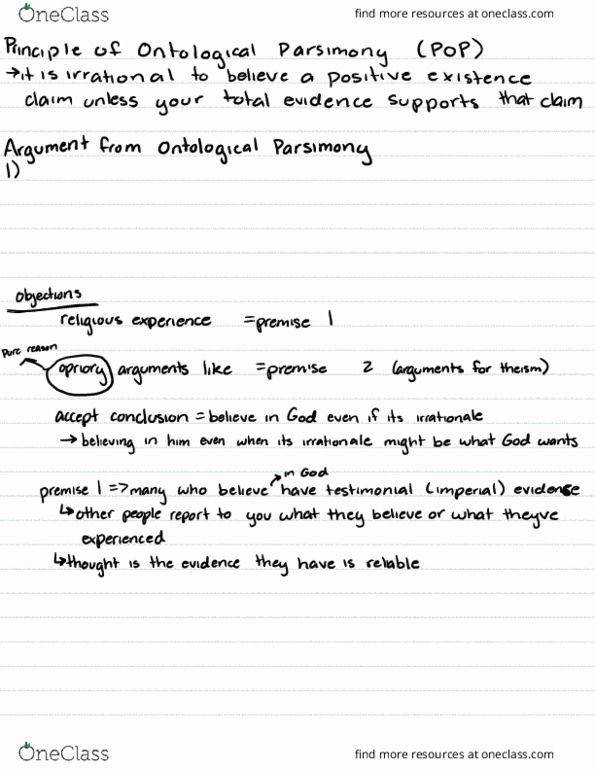 OneClass
find more resources at oneclass.com
Principle of Ontological Parsimony (POP)
→it is irrational to believe a positive existence
claim unless your total evidence supports that claim
Argument from Ontological Parsimony
1)
objections
religious experience =premise 1
Pure reason
apriory arguments like =premise 2 (arguments for theism)
accept conclusion = believe in God even if its irrationale
→ believing in him even when its irrationale might be what God wants
in God
premise 1 => many who believe have testimonial (imperial) evidence
↳other people report to you what they believe or what theyve
experienced
↳thought is the evidence they have is reliable
OneClass
find more resources at oneclass.com